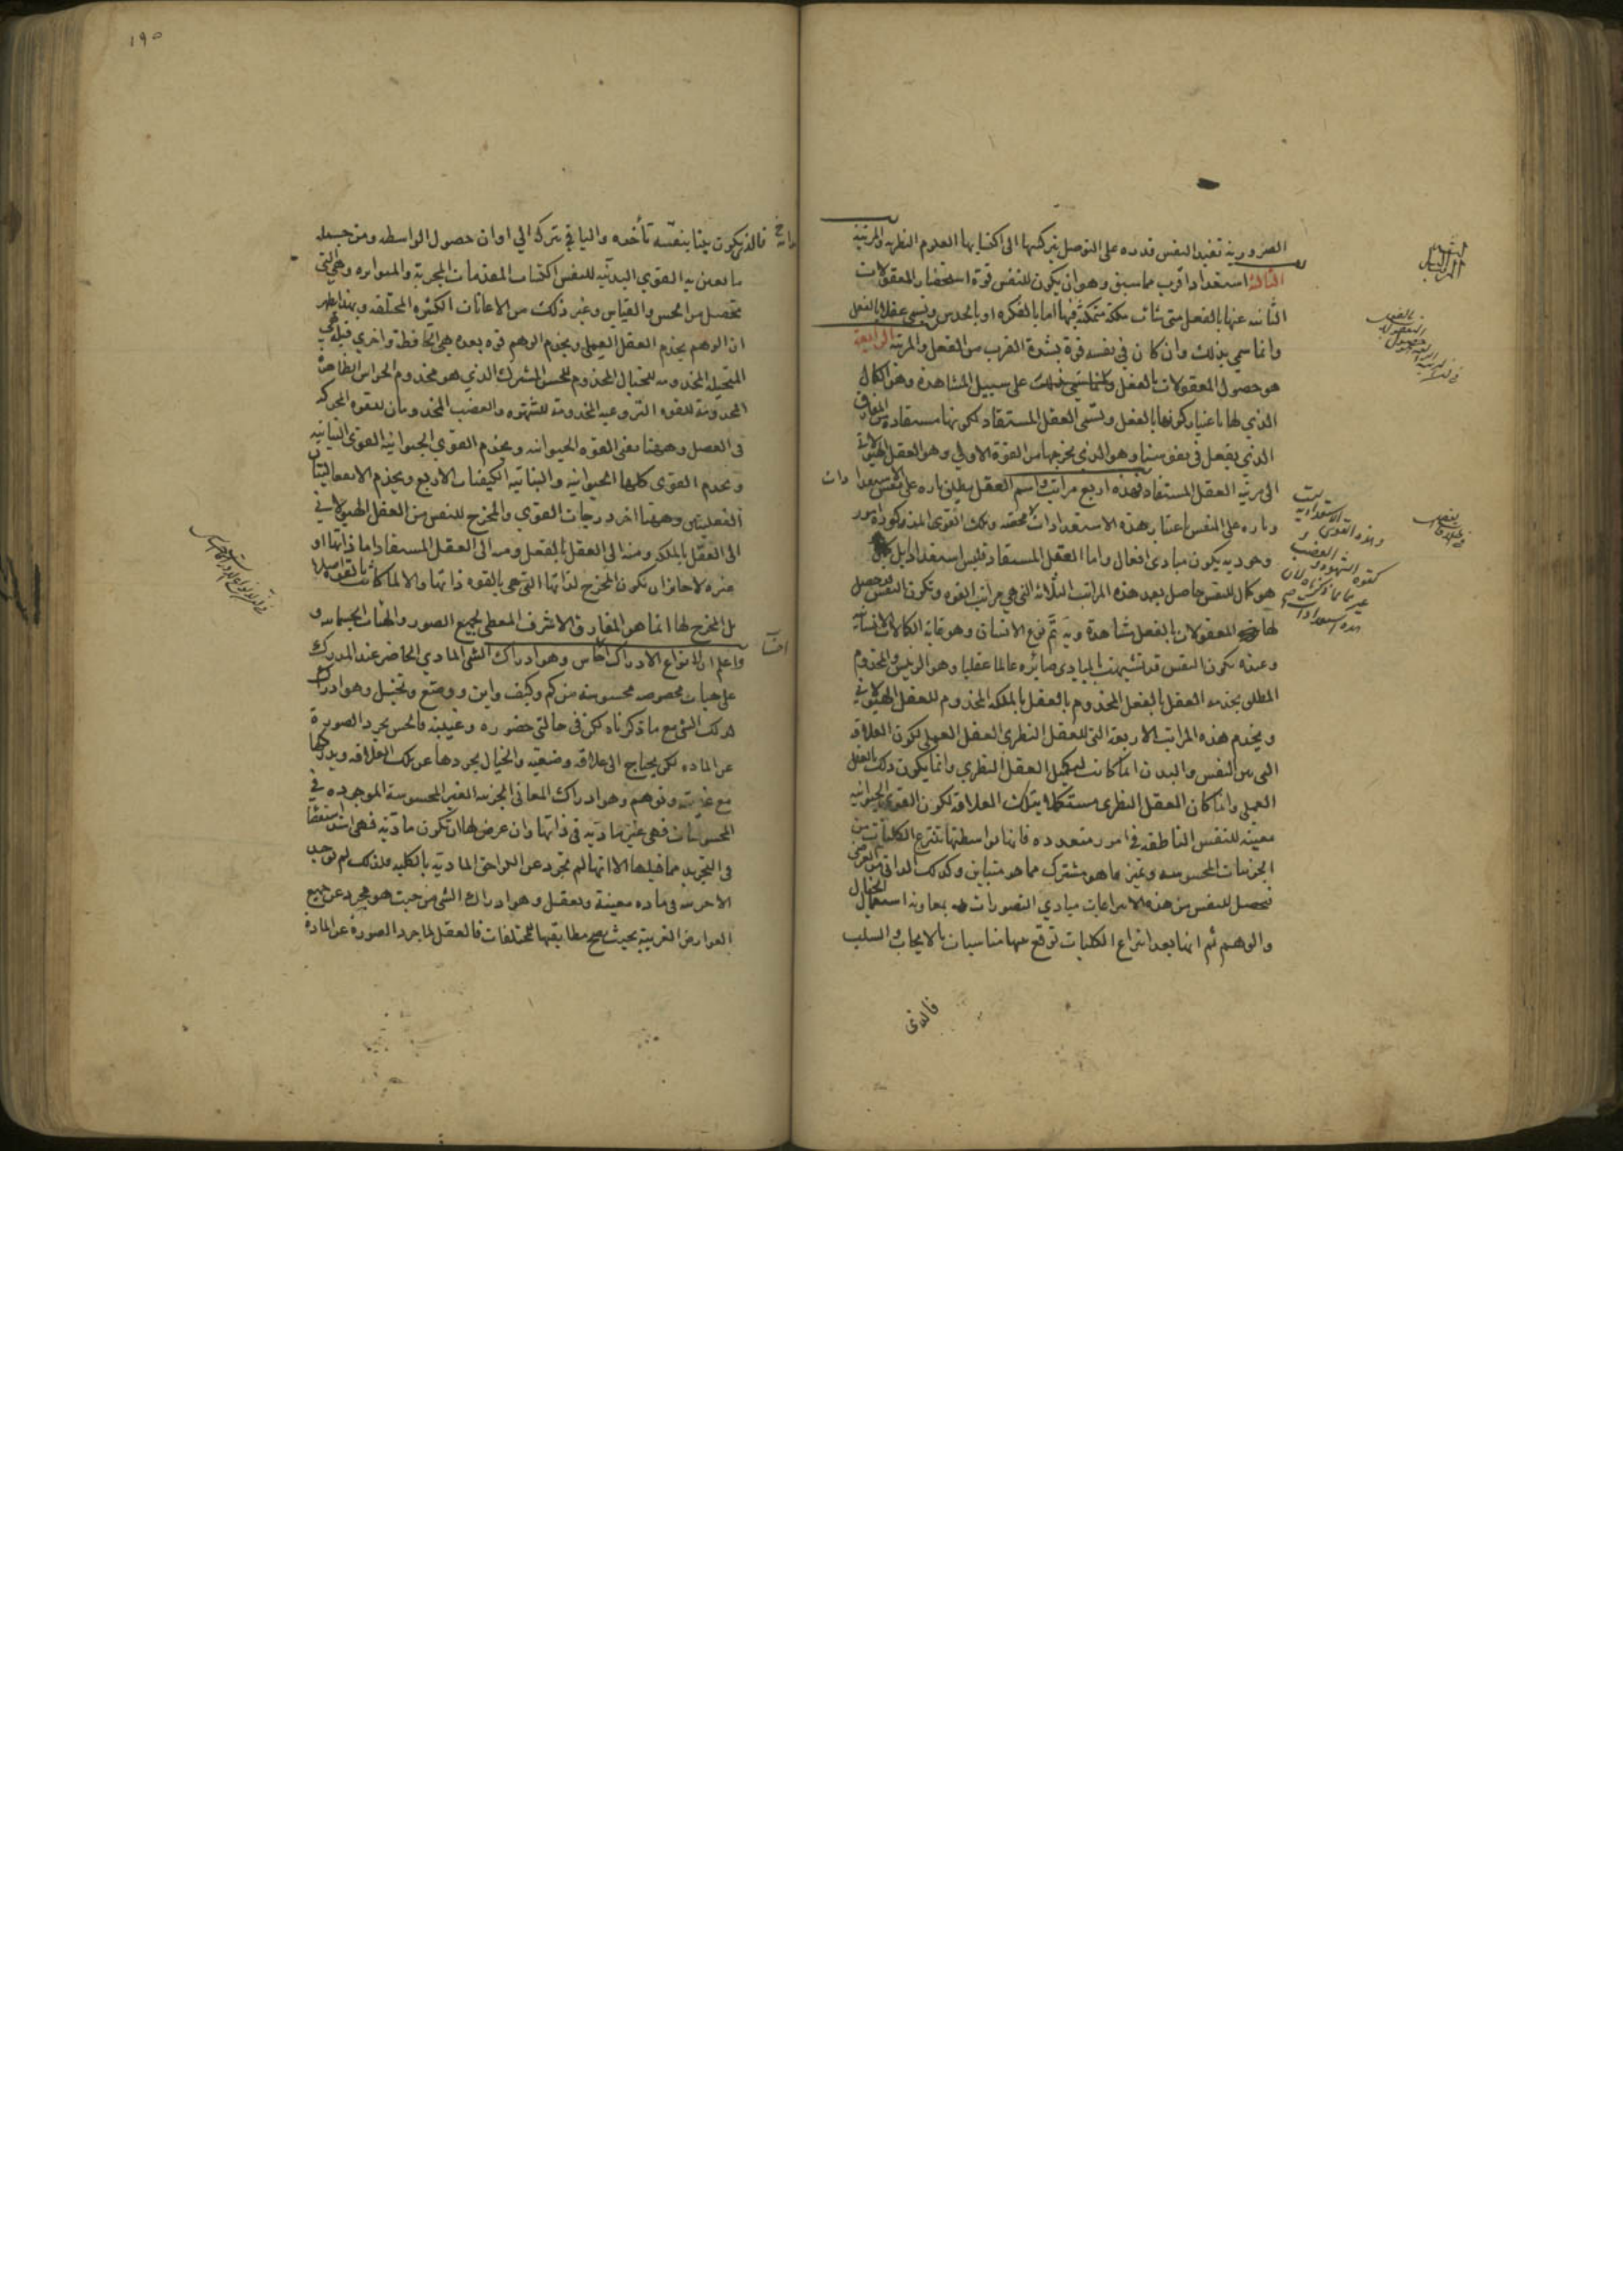 الضرورية تفيد النفس قدره على التوصل بتركيبها الى اكتسابها العلوم النظريه والمرتبة
الثالثة استعداد اقرب مما سبق وهو ان يكون للنفس قوة استحضار المعقولات
الثانيه عنها بالفعل متى شاءت ملكة متمكنة فيها اما بالفكره او بالحدس ويسمى عقلا بالفعل
وانما سمي بذلك وان كان في نفسه قوة لشدة القرب من الفعل والمرتبه الرابعة
هو حصول المعقولات بالفعل على سبيل المشاهدة وهو الكمال
الذي لها باعتبار كونها بالفعل ويسمى العقل المستفاد لكونها مستفادة من المفارق
الذي يفعل في نفوسنا وهو الذي يخرجها من القوة الاولي وهو العقل الهيولاني
الى مرتبة العقل المستفاد فهذه اربع مراتب واسم العقل يطلق تاره على نفس الاستعدادات
وتاره على النفس باعتبار هذه الاستعدادات وتلك القوى المذكورة امور
وجوديه يكون مبادئ افعال واما العقل المستفاد فليس استعدادا بل
هو كمال للنفس حاصل بعد هذه المراتب الثلاثة التي هي مراتب القوه وتكون النفس
لها المعقولات بالفعل مشاهدة وبه تم نوع الانسان وهو غاية الكمالات الانسانية
وعنده تكون النفس قد تشبهت بالمبادي صائره عالما عقليا وهو الرئيس والمخدوم
المطلق يخدمه العقل بالفعل المخدوم بالعقل بالملكه المخدوم للعقل الهيولاني
ويخدم هذه المراتب الاربعة التي للعقل النظرى العقل العملي لكون العلاقة
التى بين النفس والبدن انما كانت ليكمل العقل النظري وانما يكون ذلك بالعقل
العملي واذا كان العقل النظرى مستكملا يترك العلاقة لكون القوى الحيوانيه
معينه للنفس الناطقه في امور متعدده فانها بواسطتها تنتزع الكليات من
الجزئيات المحسوسه وتميز ما هو مشترك مما هو متباين وكذلك الذاتي من العرضي
فيحصل للنفس من هذه الانتزاعات مبادي التصورات بمعاونة استعمال الخيال
والوهم ثم انها بعد انتزاع الكليات توقع بينها مناسبات بالايجاب والسلب
فالذى
١٩٥
فالذي يكون بينا بنفسه تأخذه والباقي تتركه الي اوان حصول الواسطه ومن جمله
ما تعين به القوي البدنيه للنفس اكتساب المقدمات المجربة والمتواتره وهي التي
تحصل من الحس والقياس وغير ذلك من الاعانات الكثيره المختلفه وبهذا ظهر
ان الوهم يخدم العقل العملي ويخدم الوهم قوه بعده هي الحافظة واخري قبله هي
المتخيله المخدومه للخيال المخدوم للحس المشترك الذي هو مخدوم الحواس الظاهرة
المخدومة للقوه النزوعيه المخدومة للشهوه والغضب المخدومان للقوه المحركه
فى العضل وههنا تفنى القوه الحيوانيه ويخدم القوي الحيوانيه القوى النباتيه
ويخدم القوى كلها الحيوانيه والنباتيه الكيفيات الاربع ويخدم الانفعاليتان
الفعليتين وههنا اخر درجات القوي والمخرج للنفس من العقل الهيولاني
الى العقل بالملكه ومنه الى العقل بالفعل ومنه الى العقل المستفاد اما ذاتها او
غيره لا جائز ان تكون المخرج لذاتها التي هي بالقوه ذاتها والا لما كانت بالقوه
بل المخرج لها انما هو المفارق الاشرف المعطي لجميع الصور والهيئات الجسمانيه و
واعلم ان انواع الادراك احساس وهو ادراك الشي المادي الحاضر عند المدرك
على هيات مخصوصه محسوسة من كم وكيف واين ووضع وتخيل وهو ادراك
لذلك الشي مع ما ذكرناه لكن في حالتي حضوره وغيبته فالحس يجرد الصورة
عن الماده لكن يحتاج الى علاقه وضعيه والخيال يجردها عن تلك العلاقه ويدركها
مع غيبته وتوهم وهو ادراك المعاني الجزئيه الغير المحسوسة الموجوده في
المحسوسات فهي غير ماديه في ذاتها وان عرض لها ان تكون مادية فهى اشد استقصا
في التجريد مما قبلها الا انها لم تجرد عن اللواحق المادية بالكليه فلذلك لم توجد
الا جزئيه في ماده معينة وتعقل وهو ادراك الشي من حيث هو مجرد عن جميع
العوارض الغريبة بحيث يصح مطابقتها للمختلفات فالعقل لما جرد الصورة عن المادة